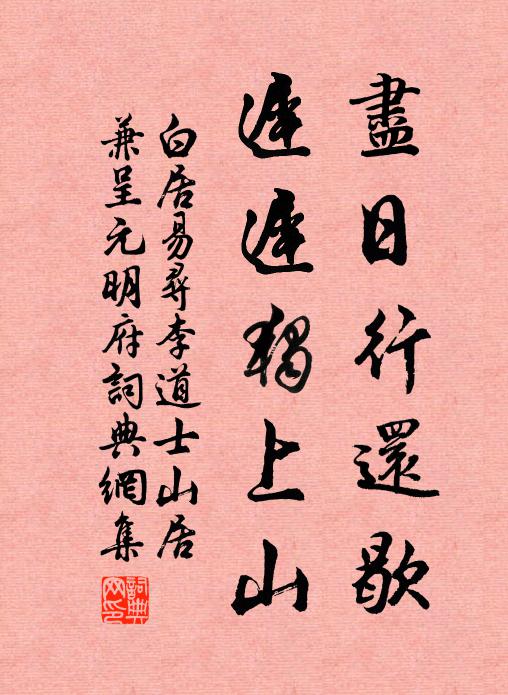 盡日行還歇
遲遲獨上山
白居易尋李道士山居
兼呈元明府詞典網集
詞典
网